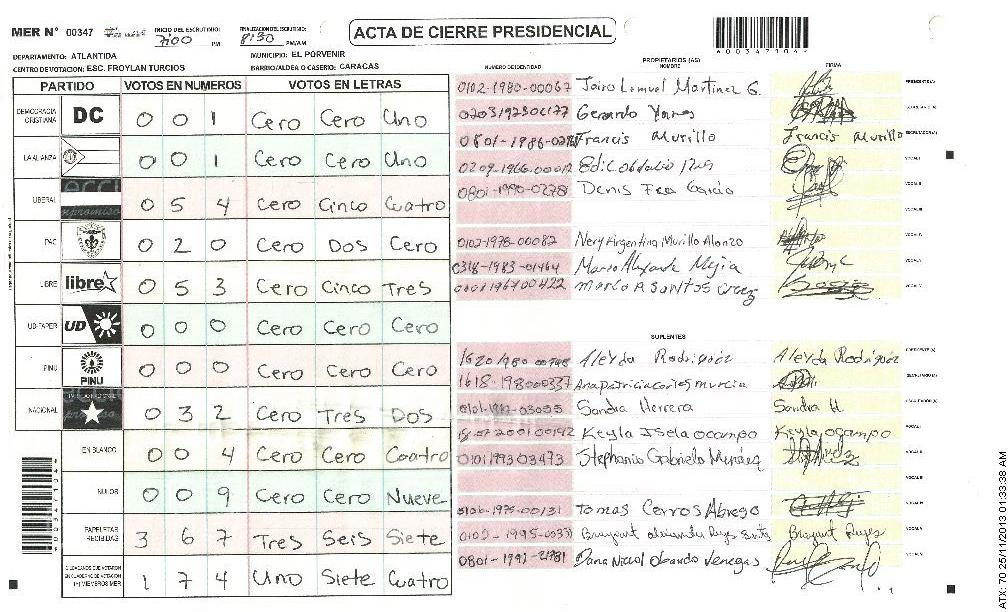 MER N° 00347 INICIO DEL ESCRUTINIO: 7:00 PM FINALIZACION DEL ESCRUTINIO: 8:30 PM/AM
ACTA DE CIERRE PRESIDENCIAL
DEPARTAMENTO: ATLANTIDA MUNICIPIO: EL PORVENIR
CENTRO DE VOTACION: ESC. FROYLAN TURCIOS BARRIO/ALDEA O CASERIO: CARACAS
PARTIDO VOTOS EN NUMEROS VOTOS EN LETRAS
DEMOCRACIA CRISTIANA DC 0 0 1 Cero Cero Uno
LA ALIANZA 0 0 1 Cero Cero Uno
LIBERAL 0 5 4 Cero Cinco Cuatro
PAC 0 2 0 Cero Dos Cero
LIBRE libre 0 5 3 Cero Cinco Tres
UD-FAPER UD 0 0 0 Cero Cero Cero
PINU PINU 0 0 0 Cero Cero Cero
NACIONAL 0 3 2 Cero Tres Dos
EN BLANCO 0 0 4 Cero Cero Cuatro
NULOS 0 0 9 Cero Cero Nueve
PAPELETAS RECIBIDAS 3 6 7 Tres Seis Siete
CIUDADANOS QUE VOTARON EN CUADERNO DE VOTACION (+) MIEMBROS MER 1 7 4 Uno Siete Cuatro
PROPIETARIOS (AS)
NUMERO DE IDENTIDAD NOMBRE FIRMA
0102-1980-00067 Jairo Lemuel Martinez G. PRESIDENTE (A)
Gerardo SECRETARIO (A)
Francis Murillo Francis Murillo ESCRUTADOR (A)
0209-1966-00012 VOCAL I
0801-1990-02781 Denis VOCAL II
VOCAL III
0102-1978-00082 Nery Argentina Murillo Alonzo VOCAL IV
0318-1983-01464 Mejia VOCAL V
Marco A Santos Cruz
SUPLENTES
Aleyda Rodriguez Aleyda Rodriguez
1618-198000337 Ana patricia
Sandra Herrera Sandra H.
Keyla Isela Ocampo Keyla Ocampo VOCAL I
0101199303473 Stephanie Gabriela Mendez VOCAL II
VOCAL III
0106-1975-00131 Tomas Cerros Abrego VOCAL IV
Brayant Brayant Reyes VOCAL V
0801-1992-21781 Dana Nicol Obando Venegas
ATX: 70 25/11/2013 01:33:38 AM